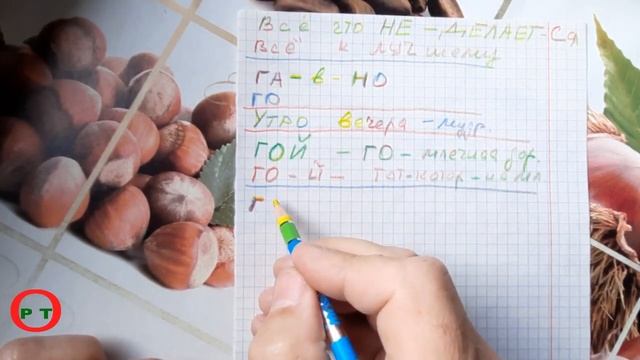 Всё что НЕ - ДЕЛАЕТ-СЯ
Всё к лучшему
ГА - в - НО
ГО
УТРО вечера - мудр.
ГОЙ - ГО - млечная дор.
ГО - Й - тот - котор - на мл
Г
РТ